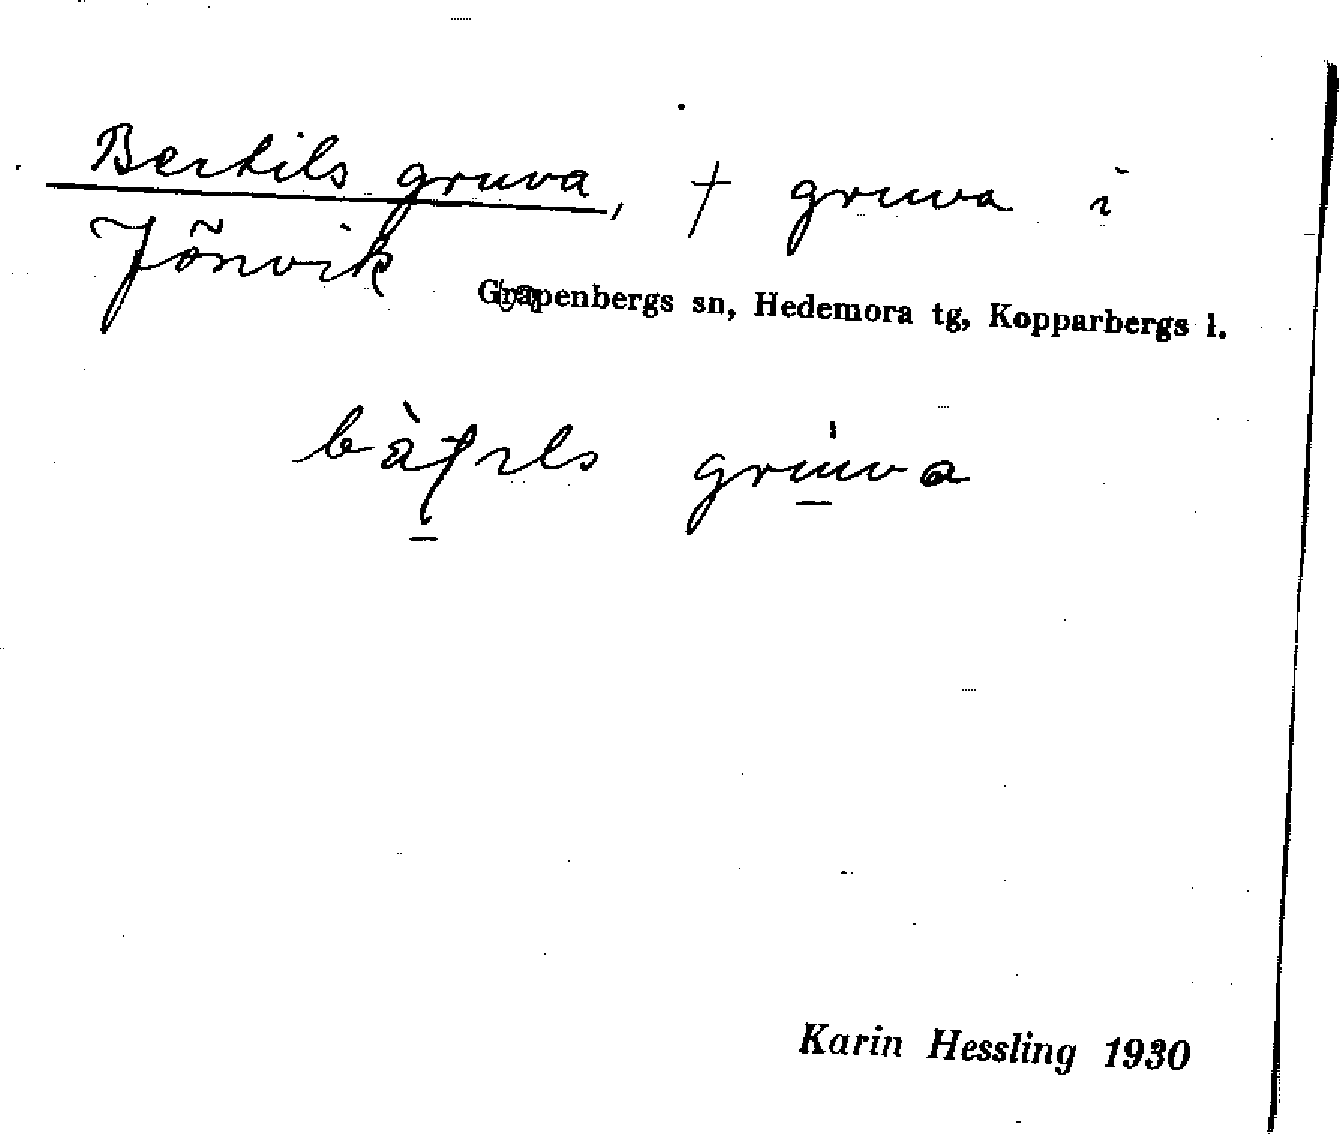 Bertils gruva, † gruva i
Jönvik
Grapenbergs sn, Hedemora tg, Kopparbergs l.
gruva
Karin Hessling 1930